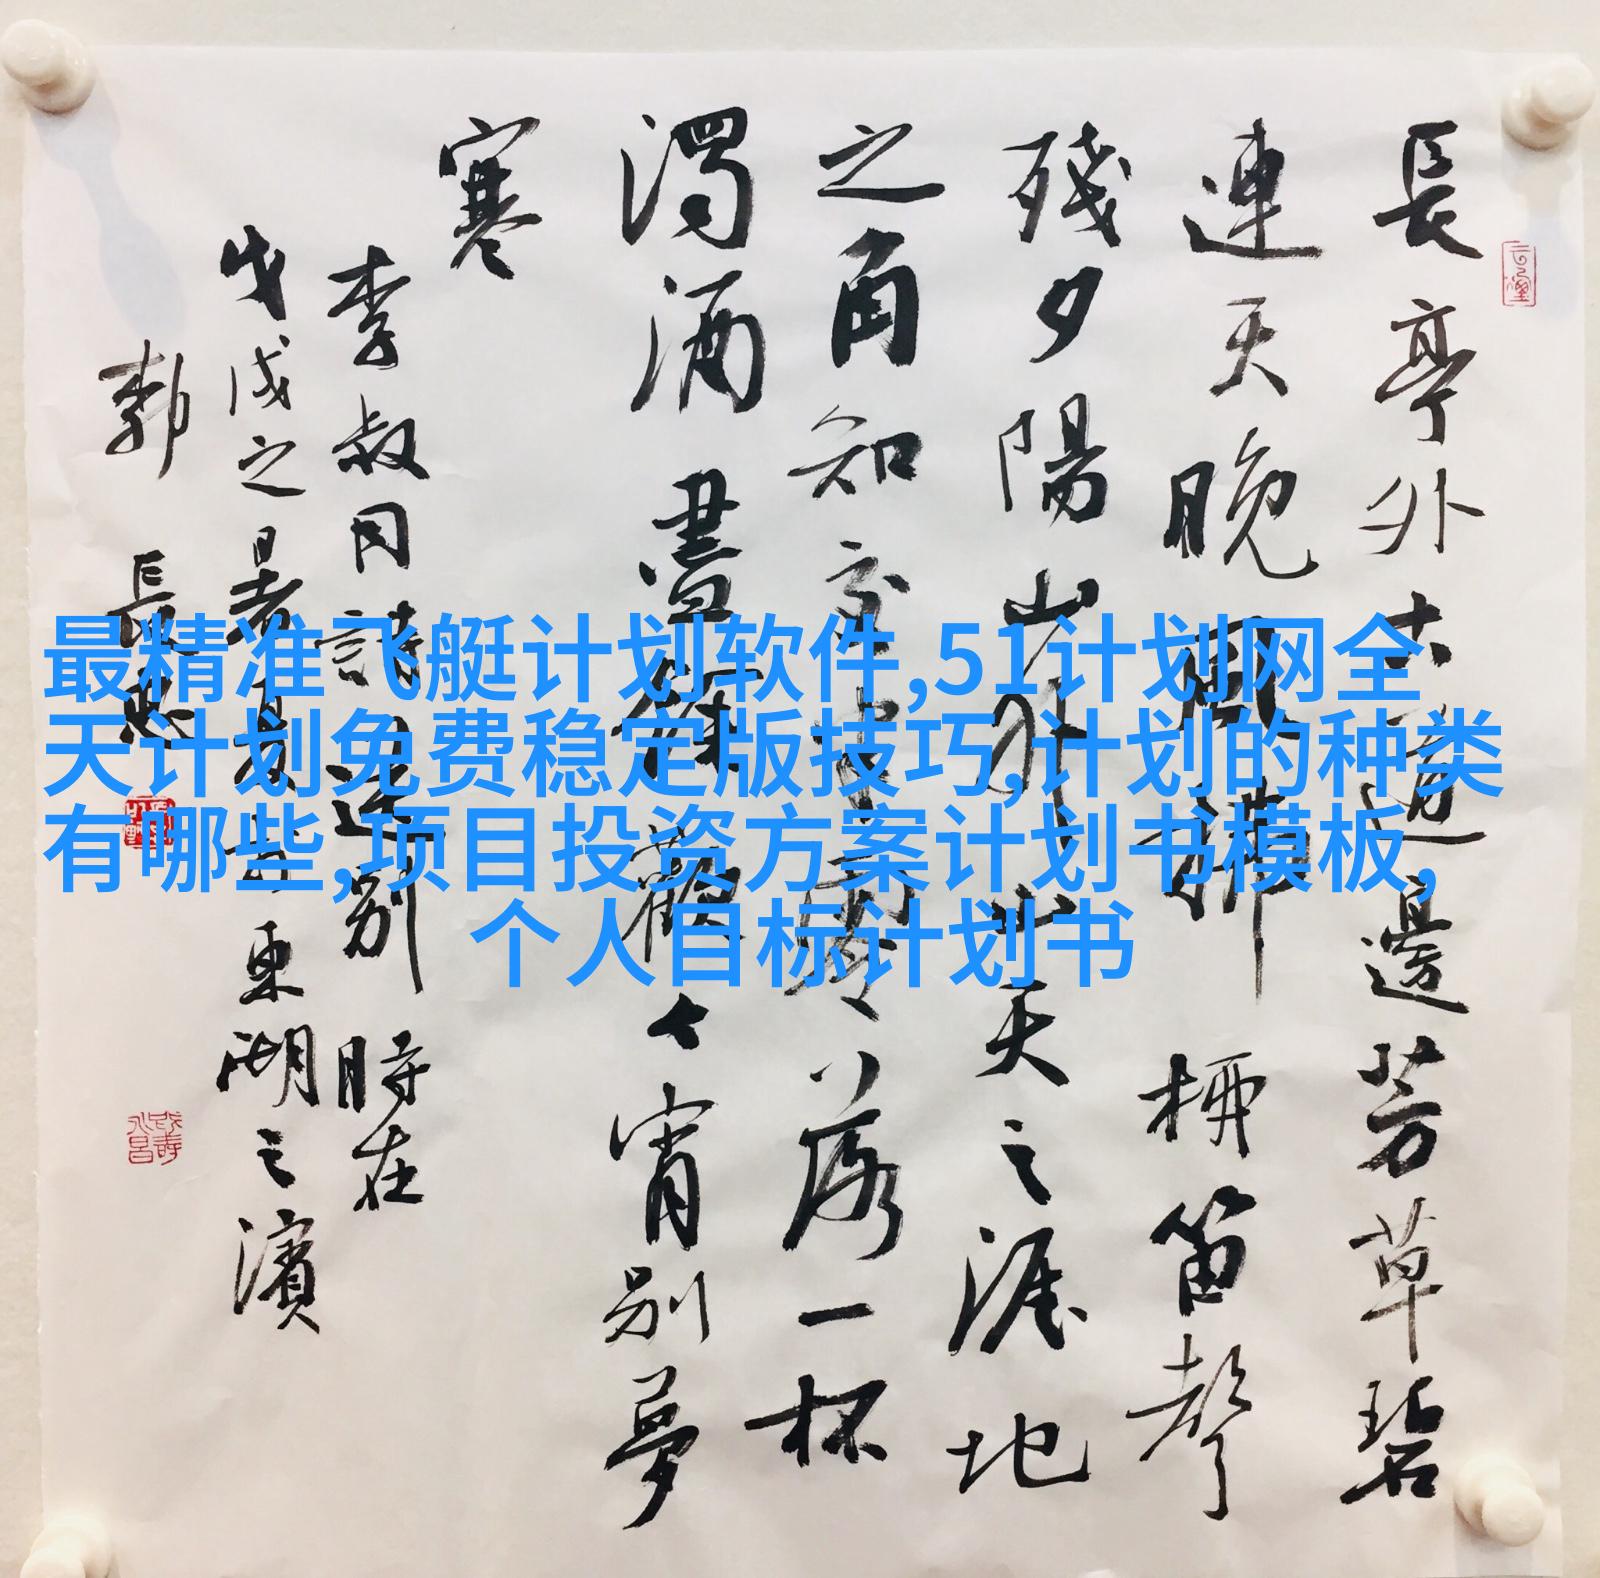 長亭外古道邊芳草碧
連天晚風拂柳笛聲
殘夕陽山外山天之涯地
之角知交半零落一杯
濁酒盡餘歡今宵別夢
寒
李叔同詩送別時在
戊戌之暑夏於東湖之濱
郭長忠
最精准飞艇计划软件,51计划网全
天计划免费稳定版技巧,计划的种类
有哪些,项目投资方案计划书模板,
个人目标计划书